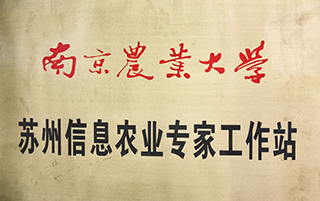 南京農業大学
苏州信息农业专家工作站